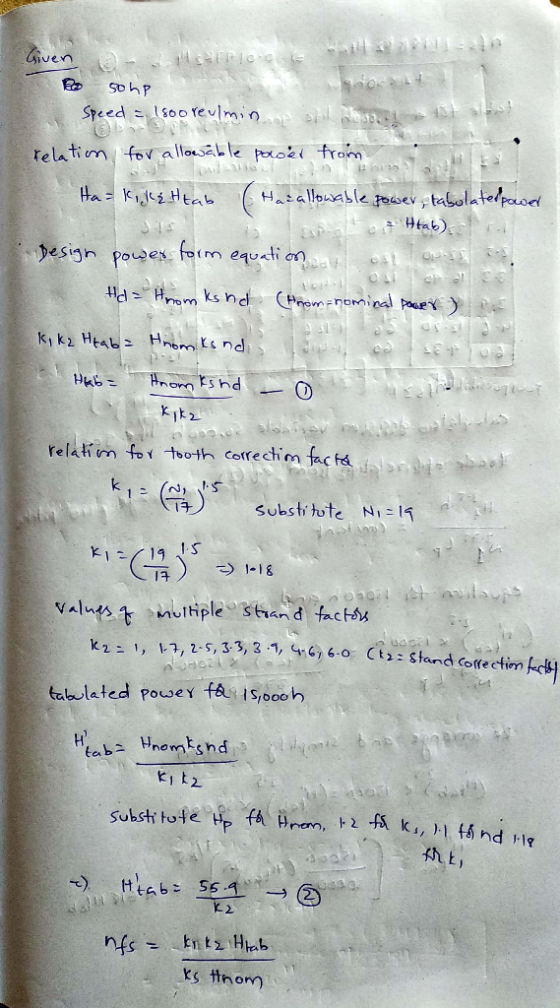 Given
50hp
Speed = 1800rev/min
relation for allowable power from
Ha = K1,K2 Htab ( Ha=allowable power, tabulated power
= Htab)
Design power form equation
Hd = Hnom ks nd (Hnom=nominal power)
K1 K2 Htab = Hnom Ks nd
Htab = Hnom Ks nd / K1K2 — ①
relation for tooth correction factor
K1 = (N1/17)^1.5 Substitute N1=19
K1 = (19/17)^1.5 ⇒ 1.18
Values of multiple strand factors
K2 = 1, 1.7, 2.5, 3.3, 3.9, 4.6, 6.0 (k2= Stand correction factor)
tabulated power for 15,000h
H'tab = Hnom Ks nd / K1 K2
Substitute Hp for Hnom, 1.2 for Ks, 1.1 for nd 1.18
for k1
⇒) H'tab = 55.9 / K2 → ②
nfs = K1 K2 Htab / Ks Hnom